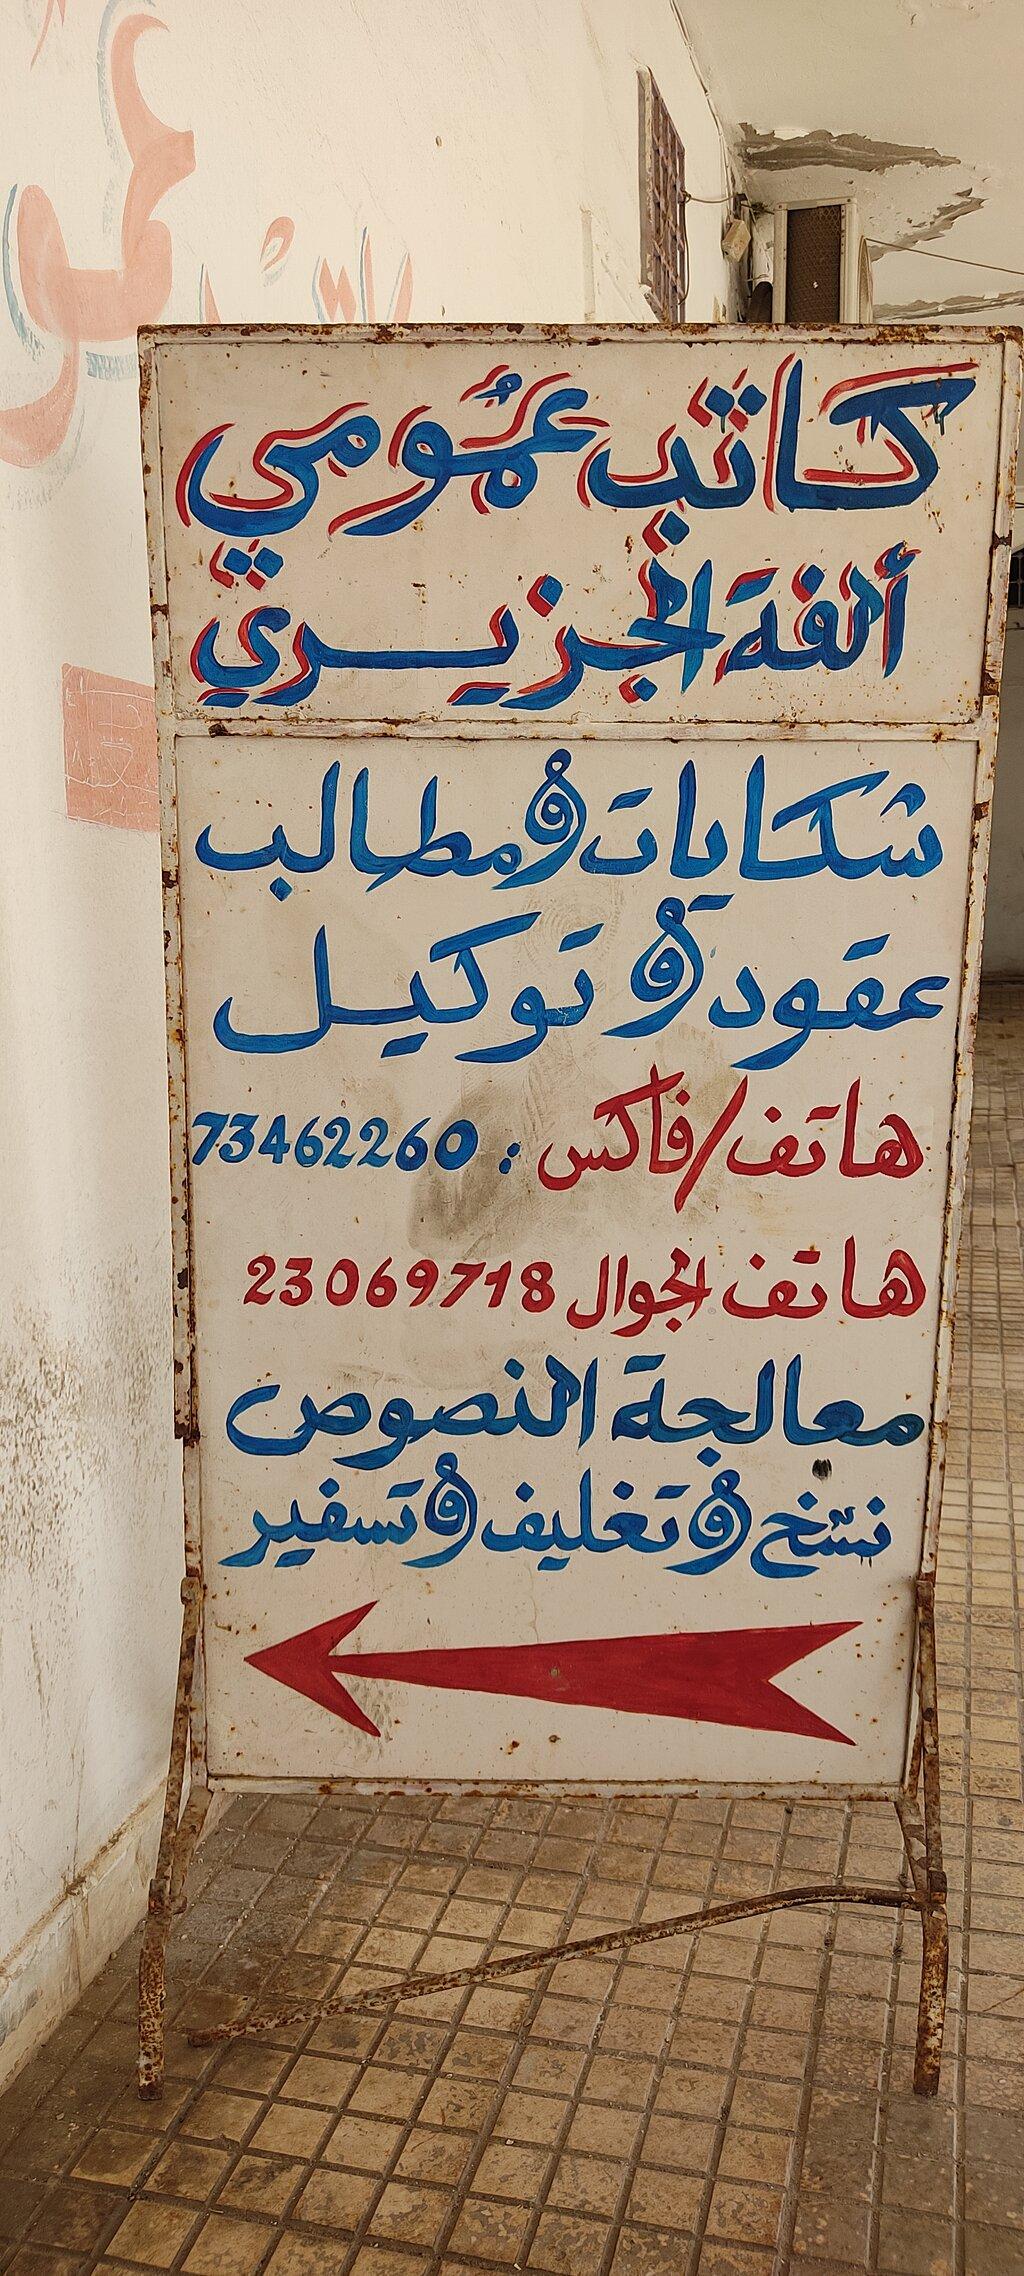 كاتب عمومي
ألفة الجزيري
شكايات و مطالب
عقود و توكيل
هاتف/فاكس : 73462260
هاتف الجوال 23069718
معالجة النصوص
نسخ و تغليف و تسفير